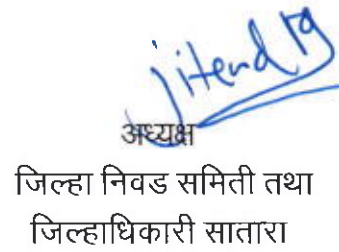 अध्यक्ष
जिल्हा निवड समिती तथा
जिल्हाधिकारी सातारा